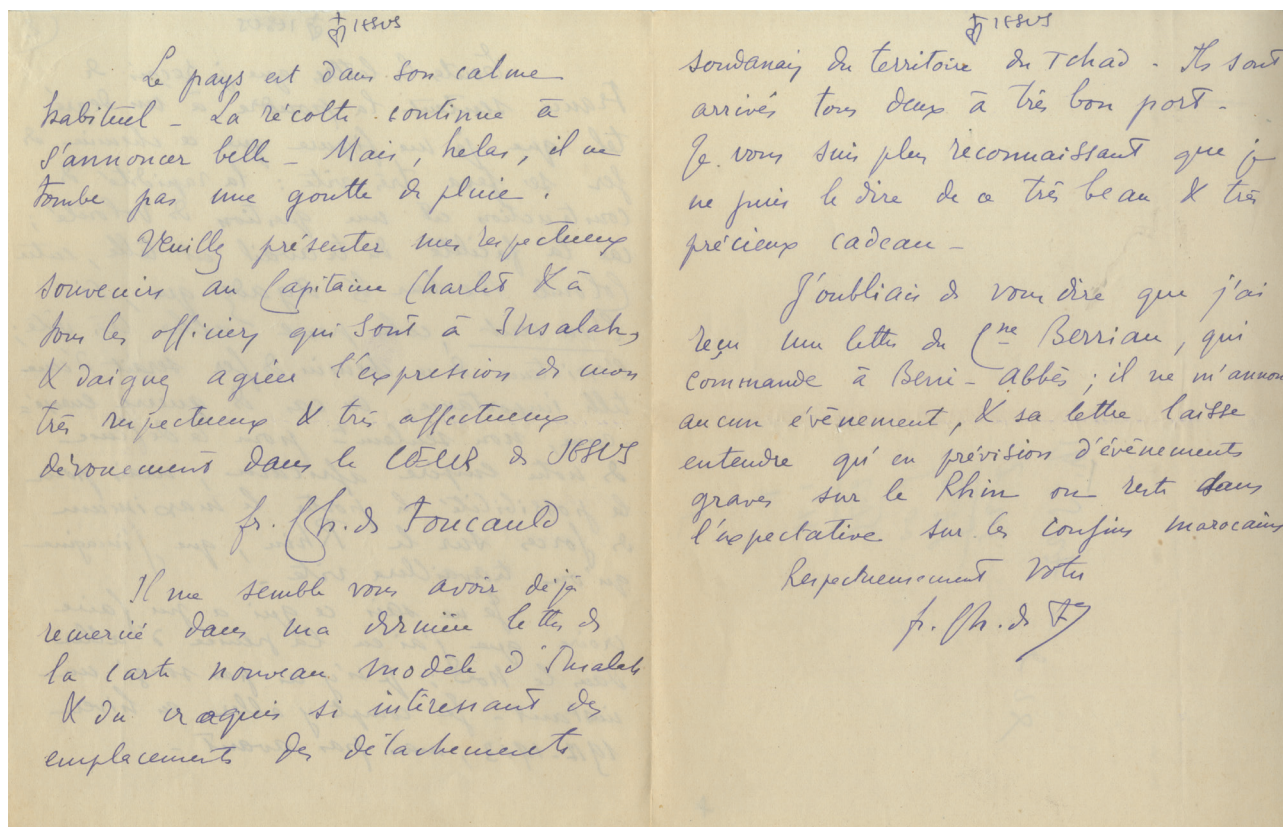 JESUS
Le pays est dans son calme
habituel - La récolte continue à
s'annoncer belle - Mais, hélas, il ne
tombe pas une goutte de pluie.
Veuillez présenter mes respectueux
souvenirs au Capitaine Charlet & à
tous les officiers qui sont à Insalah,
& daignez agréer l'expression de mon
très respectueux & très affectueux
dévouement dans le CŒUR de JESUS
fr. Ch. de Foucauld
Il me semble vous avoir déjà
remercié dans ma dernière lettre de
la carte nouveau modèle d'Insalah
& du croquis si intéressant des
emplacements des détachements
JESUS
soudanais du territoire du Tchad - Ils sont
arrivés tous deux à très bon port -
Je vous suis plus reconnaissant que je
ne puis le dire de ce très beau & très
précieux cadeau -
J'oubliais de vous dire que j'ai
reçu une lettre du Cne Berriau, qui
commande à Beni-Abbès ; il ne m'annonce
aucun événement, & sa lettre laisse
entendre qu'en prévision d'événements
graves sur le Rhin on reste dans
l'expectative sur les confins marocains
Respectueusement votre
fr. Ch. de F